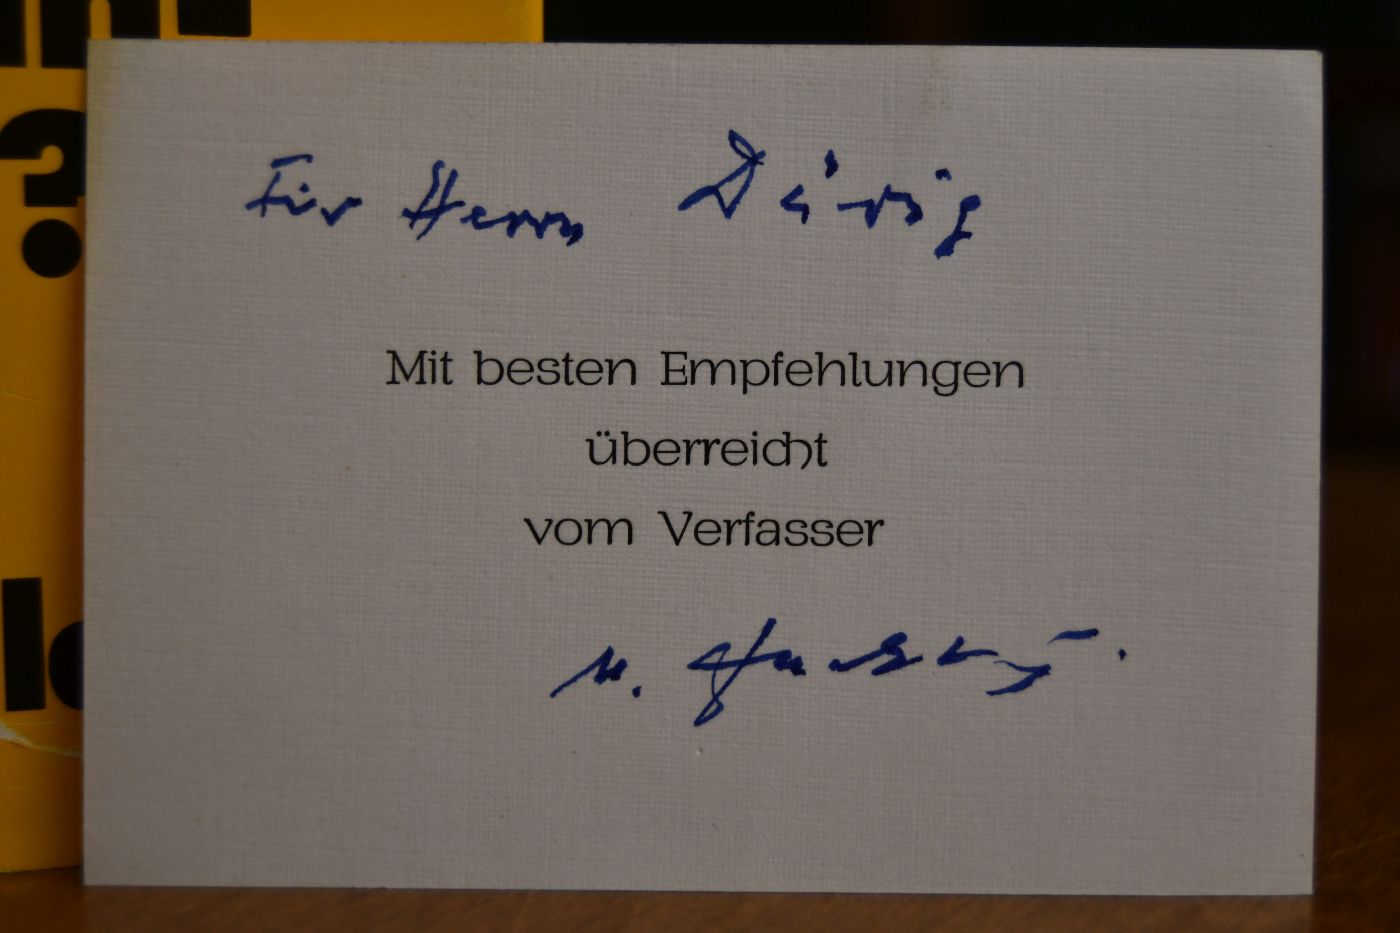 Für Herrn
Mit besten Empfehlungen
überreicht
vom Verfasser
?